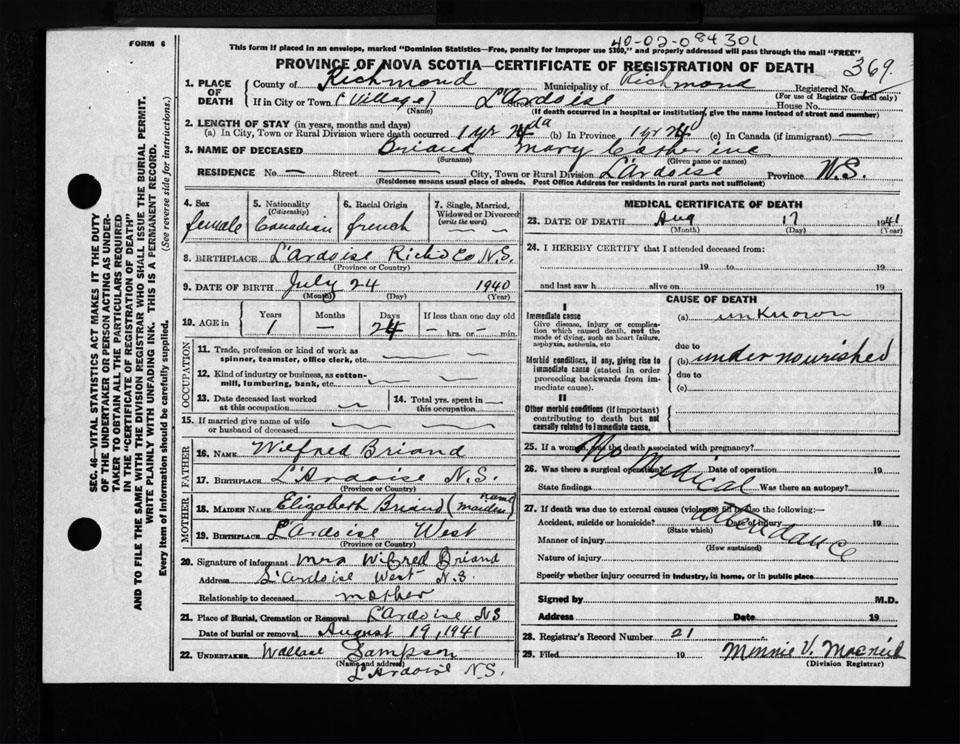 FORM 6
40-02-084301
This form if placed in an envelope, marked "Dominion Statistics—Free, penalty for improper use $300," and properly addressed will pass through the mail "FREE"
PROVINCE OF NOVA SCOTIA—CERTIFICATE OF REGISTRATION OF DEATH
369.
1. PLACE OF DEATH
County of Richmond Municipality of Richmond Registered No.
(For use of Registrar General only)
If in City or Town (Village) L'Ardoise Street House No.
(Name) (If death occurred in a hospital or institution, give the name instead of street and number)
2. LENGTH OF STAY (in years, months and days)
(a) In City, Town or Rural Division where death occurred 1 yr 24 da (b) In Province 1 yr 24 d (c) In Canada (if immigrant) —
3. NAME OF DECEASED Briand Mary Catherine
(Surname) (Given name or names)
RESIDENCE No. — Street — City, Town or Rural Division L'ardoise Province N.S.
(Residence means usual place of abode. Post Office Address for residents in rural parts not sufficient)
4. Sex female
5. Nationality (Citizenship) Canadian
6. Racial Origin french
7. Single, Married, Widowed or Divorced (write the word)
8. BIRTHPLACE L'Ardoise Richd Co N.S.
(Province or Country)
9. DATE OF BIRTH July 24 1940
(Month) (Day) (Year)
10. AGE in Years 1 Months — Days 24 If less than one day old — hrs. or — min.
OCCUPATION
11. Trade, profession or kind of work as spinner, teamster, office clerk, etc.
12. Kind of industry or business, as cotton-mill, lumbering, bank, etc.
13. Date deceased last worked at this occupation
14. Total yrs. spent in this occupation
15. If married give name of wife or husband of deceased
FATHER
16. NAME Wilfred Briand
17. BIRTHPLACE L'Ardoise N.S.
(Province or Country)
MOTHER
18. MAIDEN NAME Elizabeth Briand (maiden name)
19. BIRTHPLACE L'Ardoise West
(Province or Country)
20. Signature of informant Mrs Wilfred Briand
Address L'Ardoise West N.S
Relationship to deceased mother
21. Place of Burial, Cremation or Removal L'Ardoise NS
Date of burial or removal August 19, 1941
22. UNDERTAKER Wallace Sampson
(Name and address)
L'Ardoise N.S.
MEDICAL CERTIFICATE OF DEATH
23. DATE OF DEATH Aug 17 1941
(Month) (Day) (Year)
24. I HEREBY CERTIFY that I attended deceased from:
19 to 19
and last saw h alive on 19
CAUSE OF DEATH
I
Immediate cause
Give disease, injury or complication which caused death, not the mode of dying, such as heart failure, asphyxia, asthenia, etc
(a) unknown
due to
Morbid conditions, if any, giving rise to immediate cause (stated in order proceeding backwards from immediate cause).
(b) under nourished
due to
(c)
II
Other morbid conditions (if important) contributing to death but not causally related to immediate cause.
25. If a woman, was the death associated with pregnancy?
26. Was there a surgical operation? Date of operation 19
State findings Was there an autopsy?
No Medical attendance
27. If death was due to external causes (violence) fill in also the following:—
Accident, suicide or homicide? Date of injury 19
(State which)
Manner of injury
(How sustained)
Nature of injury
Specify whether injury occurred in industry, in home, or in public place
Signed by M.D.
Address Date 19
28. Registrar's Record Number 21
29. Filed 19 Minnie V. Macneil
(Division Registrar)
SEC. 46—VITAL STATISTICS ACT MAKES IT THE DUTY
OF THE UNDERTAKER OR PERSON ACTING AS UNDER-
TAKER TO OBTAIN ALL THE PARTICULARS REQUIRED
IN THE "CERTIFICATE OF REGISTRATION OF DEATH"
AND TO FILE THE SAME WITH THE DIVISION REGISTRAR WHO SHALL ISSUE THE BURIAL PERMIT.
WRITE PLAINLY WITH UNFADING INK. THIS IS A PERMANENT RECORD.
Every item of information should be carefully supplied. (See reverse side for instructions.)